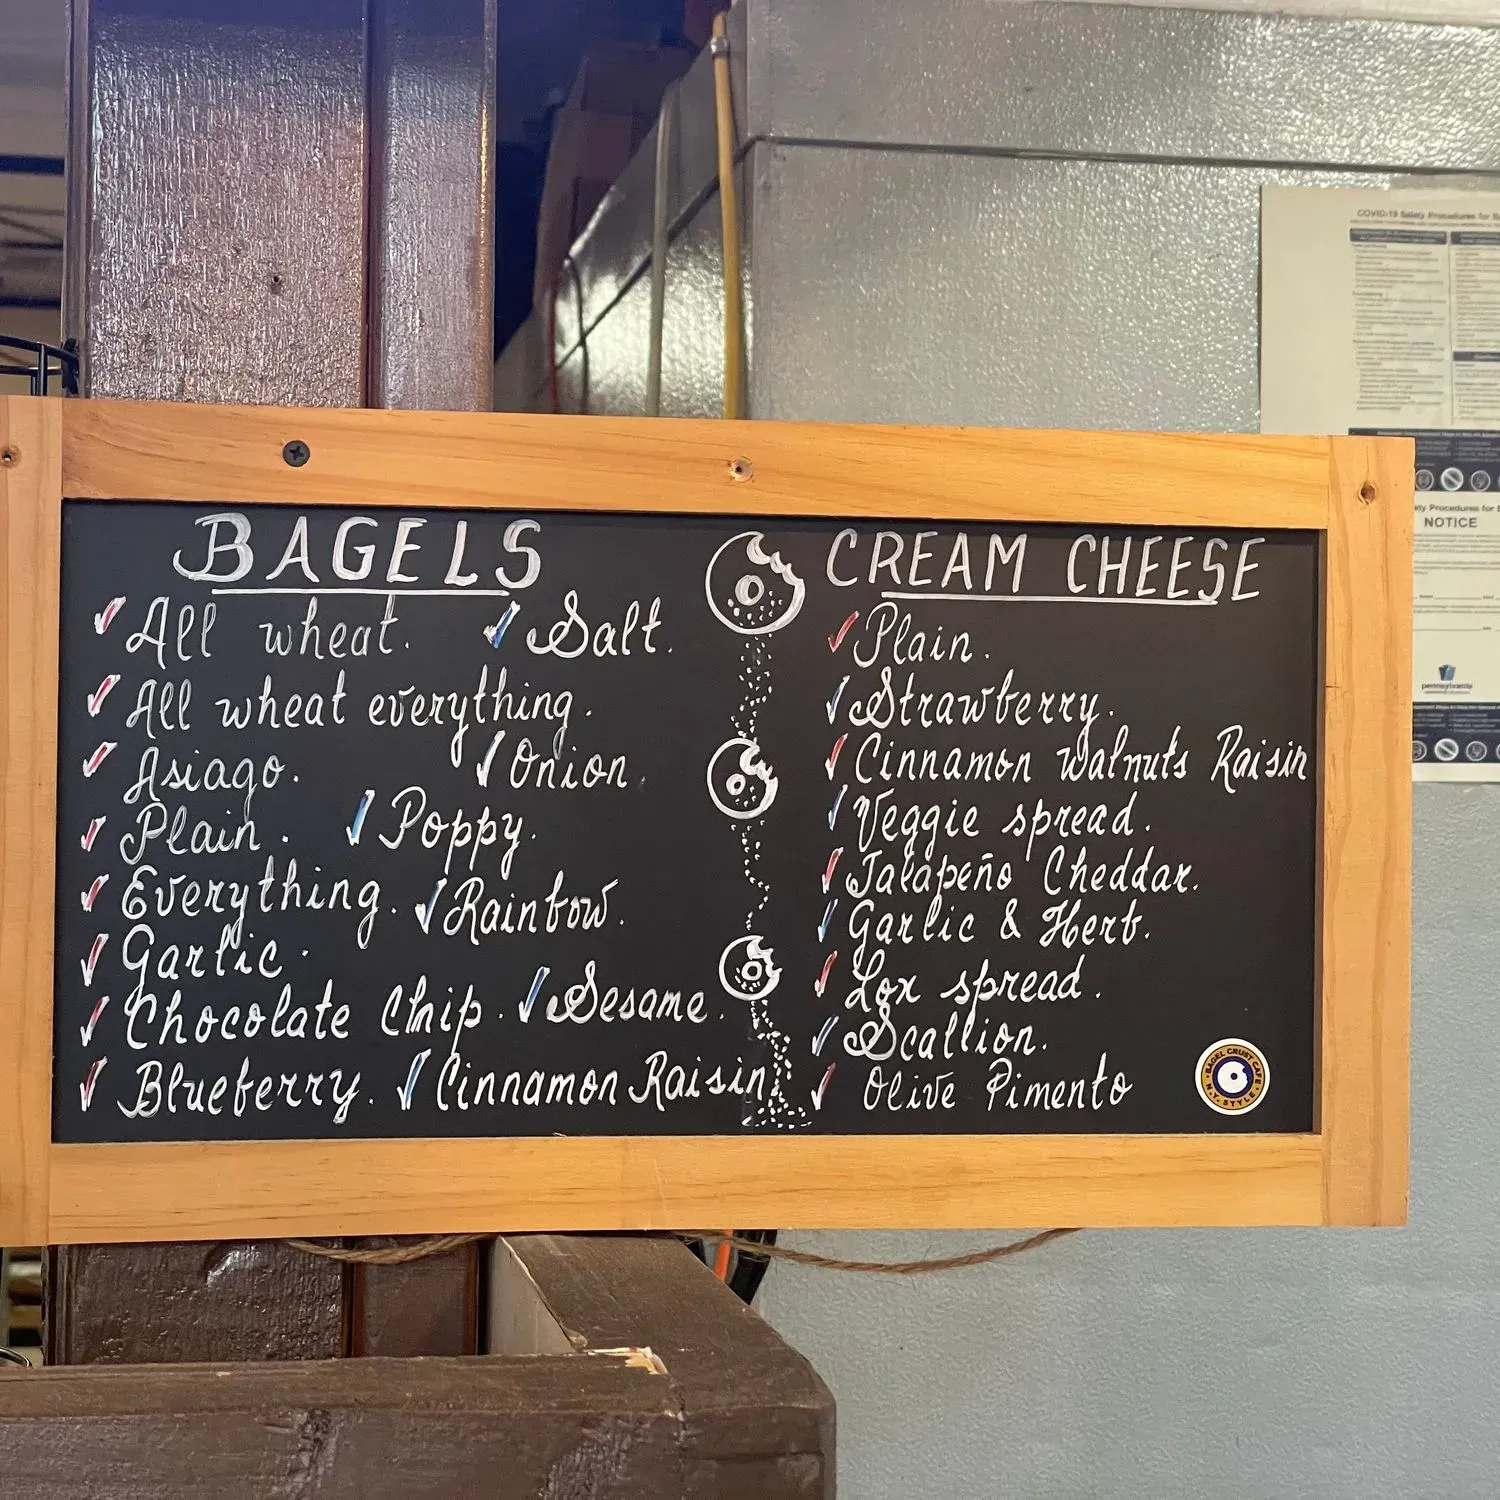 BAGELS
All wheat. Salt.
All wheat everything.
Asiago. Onion.
Plain. Poppy.
Everything. Rainbow.
Garlic.
Chocolate Chip. Sesame.
Blueberry. Cinnamon Raisin
CREAM CHEESE
Plain.
Strawberry.
Cinnamon walnuts Raisin
Veggie spread.
Jalapeño Cheddar.
Garlic & Herb.
Lox spread.
Scallion.
Olive Pimento
BAGEL CRUST CAFE
N.Y. STYLE
COVID-19 Safety Procedures for
Safety Procedures for
NOTICE
pennsylvania